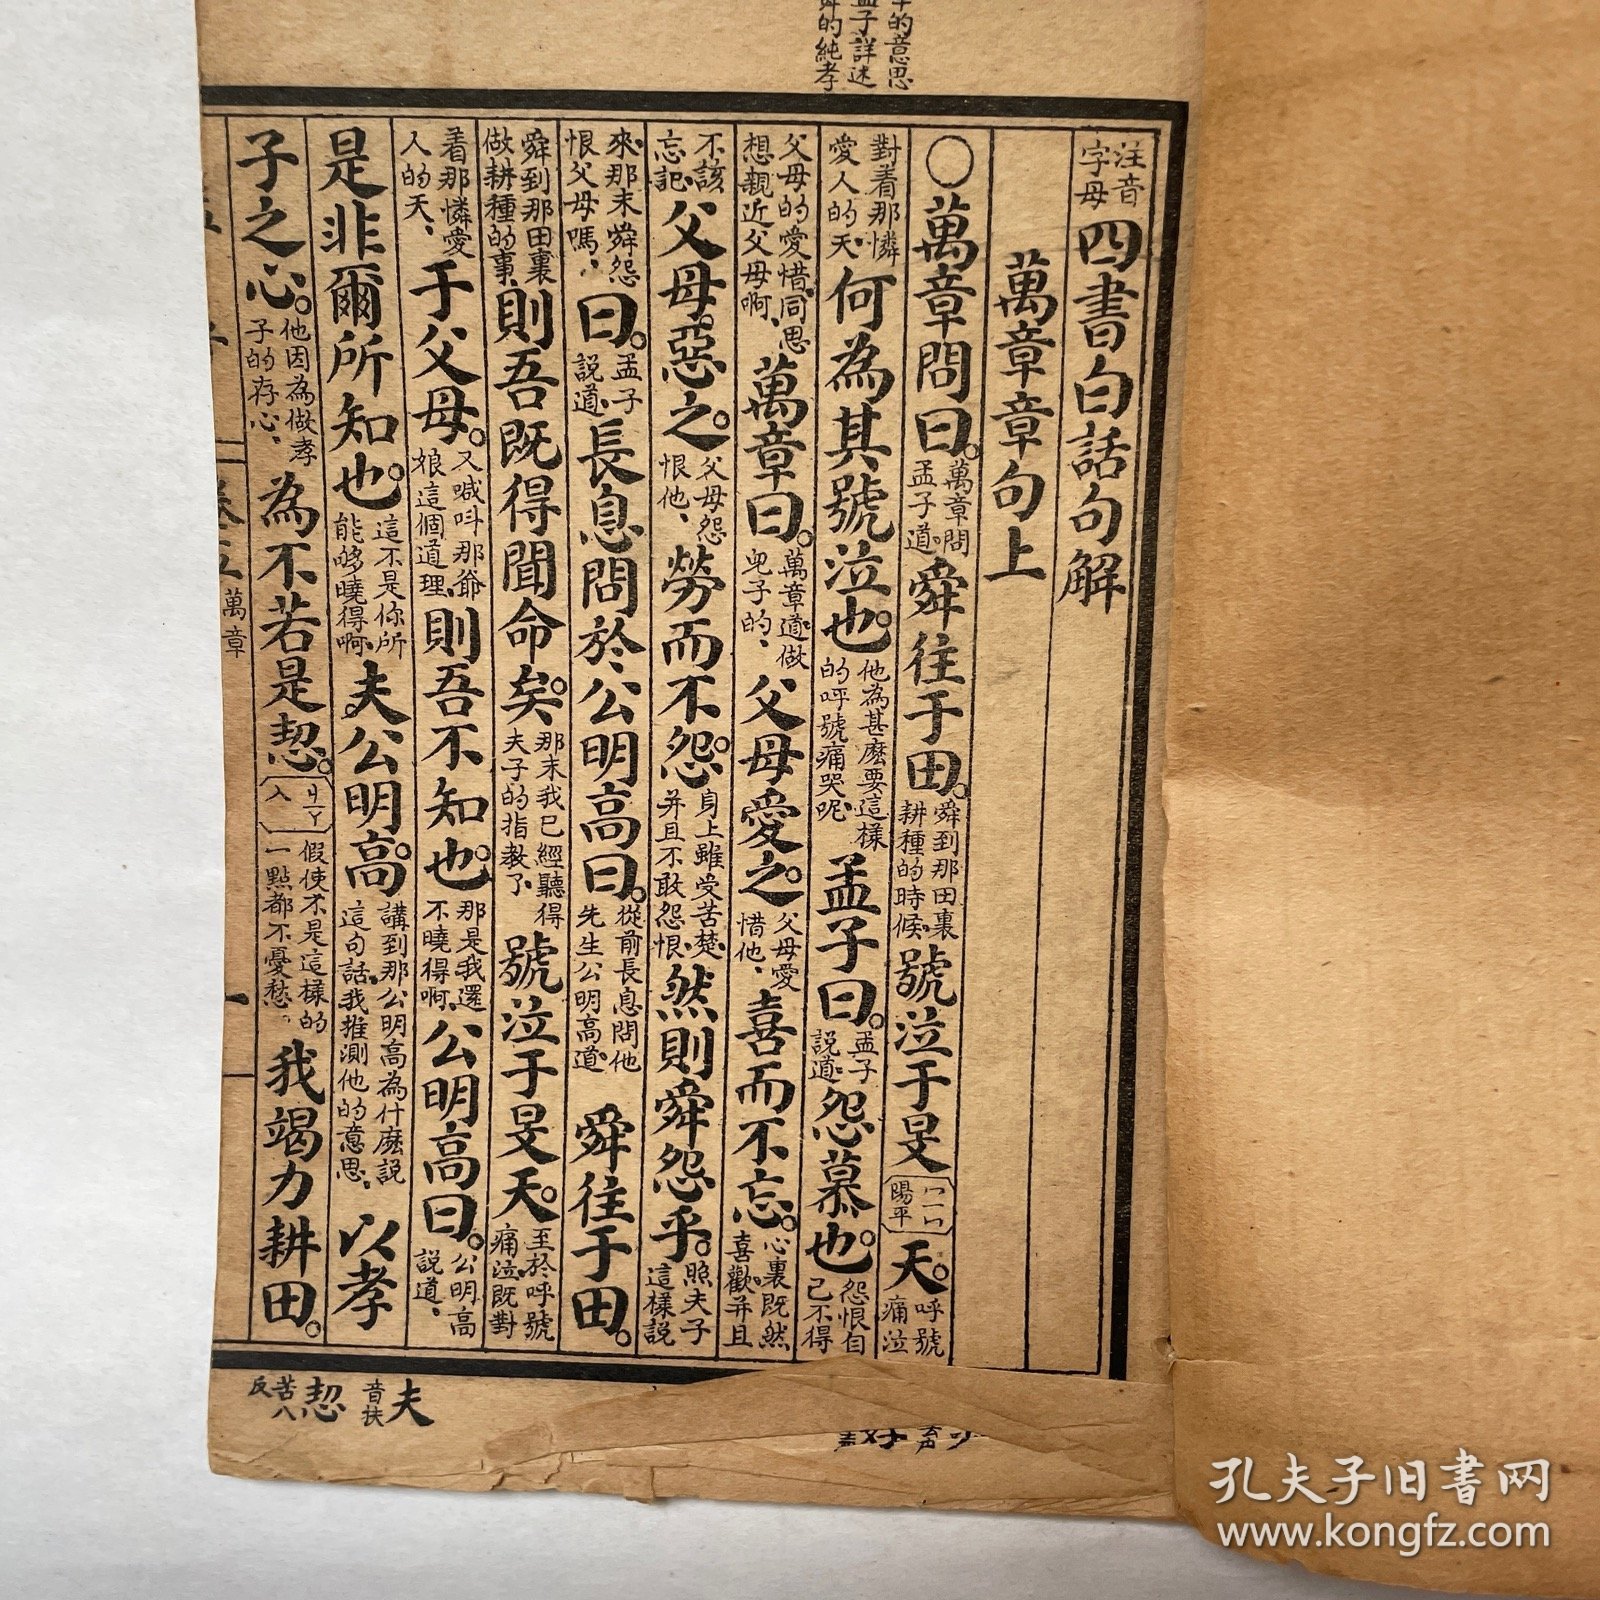 的意思
孟子詳述
舜的純孝
注音字母四書白話句解
萬章章句上
〇萬章問曰。萬章問孟子道、舜往于田。舜到那田裏耕種的時候、號泣于旻ㄇㄧㄣ陽平天。呼號痛泣
對着那憐愛人的天、何為其號泣也。他為甚麽要這樣的呼號痛哭呢、孟子曰。孟子說道、怨慕也。怨恨自己不得
父母的愛惜、同思想親近父母啊、萬章曰。萬章道、做兒子的、父母愛之。父母愛惜他、喜而不忘。心裏既然喜歡、并且
不該忘記、父母惡之。父母怨恨他、勞而不怨。身上雖受苦楚、并且不敢怨恨、然則舜怨乎。照夫子這樣說
來、那末舜怨恨父母嗎、曰。孟子說道、長息問於公明高曰。從前長息問他先生公明高道、舜往于田。
舜到那田裏做耕種的事、則吾既得聞命矣。那末我已經聽得夫子的指教了、號泣于旻天。至於呼號痛泣、既對
着那憐愛人的天、于父母。又喊呌那爺娘、這個道理、則吾不知也。那是我還不曉得啊、公明高曰。公明高說道、
是非爾所知也。這不是你所能够曉得啊、夫公明高。講到那公明高為什麽說這句話、我推測他的意思、以孝
子之心。他因為做孝子的存心、為不若是恝。ㄐㄧㄚ入假使不是這樣的一點都不憂愁、我竭力耕田。
卷五 萬章 一
夫音扶
恝苦八反
孔夫子旧书网
www.kongfz.com